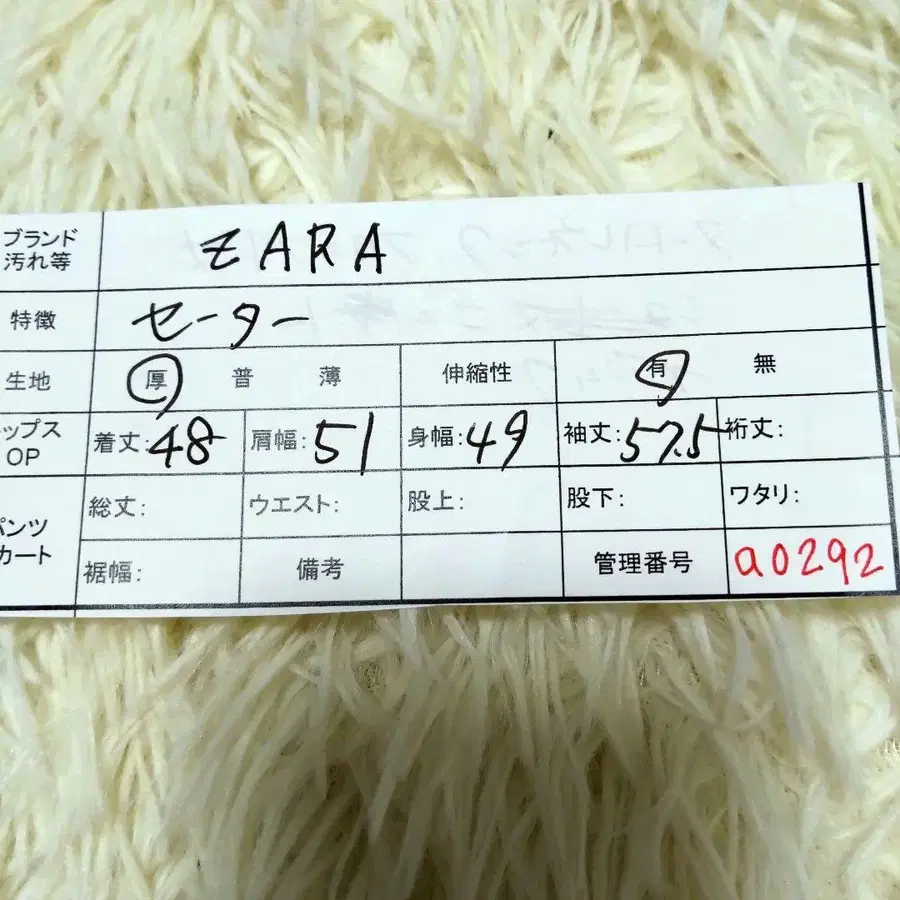 ブランド
汚れ等 ZARA
特徴 セーター
生地 厚 普 薄 伸縮性 有 無
ップス
OP 着丈:48 肩幅:51 身幅:49 袖丈:57.5 裄丈:
総丈: ウエスト: 股上: 股下: ワタリ:
パンツ
カート
裾幅: 備考 管理番号 a0292